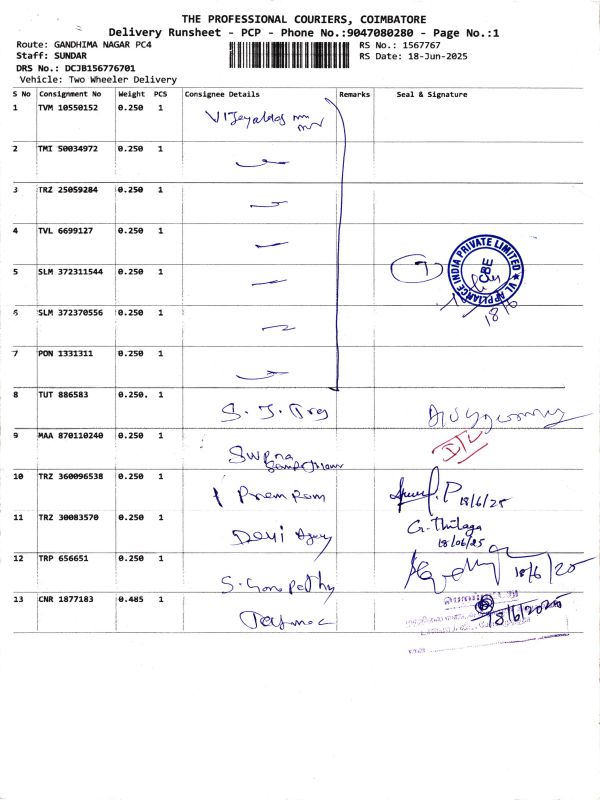 THE PROFESSIONAL COURIERS, COIMBATORE
Delivery Runsheet - PCP - Phone No.:9047080280 - Page No.:1
Route: GANDHIMA NAGAR PC4
RS No.: 1567767
Staff: SUNDAR
RS Date: 18-Jun-2025
DRS No.: DCJB156776701
Vehicle: Two Wheeler Delivery
S No Consignment No Weight PCS Consignee Details Remarks Seal & Signature
1 TVM 10550152 0.250 1
2 TMI 50034972 0.250 1
3 TRZ 25059284 0.250 1
4 TVL 6699127 0.250 1
5 SLM 372311544 0.250 1 7
VL APPLIANCE INDIA PRIVATE LIMITED CBE
18/6
6 SLM 372370556 0.250 1
7 PON 1331311 0.250 1
8 TUT 886583 0.250. 1 S. J.
9 MAA 870110240 0.250 1 Swapna
10 TRZ 360096538 0.250 1 Prem Ram P 18/6/25
11 TRZ 30083570 0.250 1 Devi G. Thilaga
18/06/25
12 TRP 656651 0.250 1 S. Ganapathy 18/6/25
13 CNR 1877183 0.485 1 18/6/2025